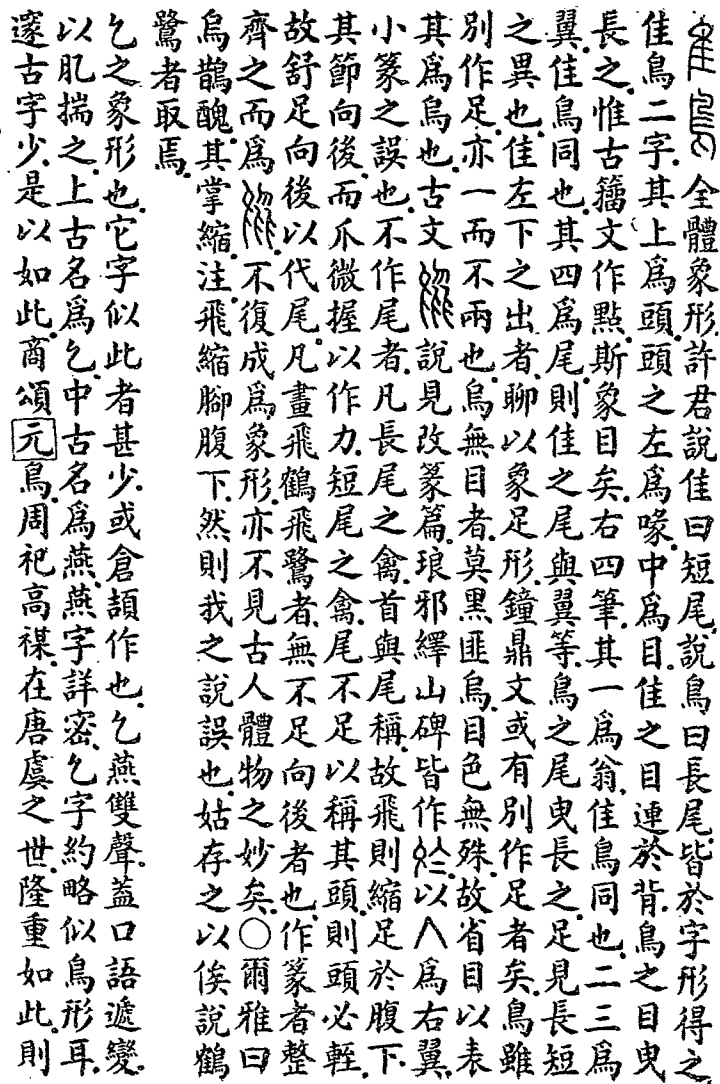 全體象形許君說隹曰短尾說鳥曰長尾皆於字形得之
隹鳥二字其上爲頭頭之左爲喙中爲目隹之目連於背鳥之目曳
長之惟古籒文作點斯象目矣右四筆其一爲翁隹鳥同也二三爲
翼隹鳥同也其四爲尾則隹之尾與翼等鳥之尾曳長之足見長短
之異也隹左下之出者聊以象足形鐘鼎文或有別作足者矣鳥雖
別作足亦一而不兩也烏無目者莫黑匪烏目色無殊故省目以表
其爲烏也古文說見改篆篇琅邪繹山碑皆作以人爲右翼
小篆之誤也不作尾者凡長尾之禽首與尾稱故飛則縮足於腹下
其節向後而爪微握以作力短尾之禽尾不足以稱其頭則頭必輊
故舒足向後以代尾凡畫飛鶴飛鷺者無不足向後者也作篆者整
齊之而爲不復成爲象形亦不見古人體物之妙矣○爾雅曰
烏鵲醜其掌縮注飛縮腳腹下然則我之說誤也姑存之以俟說鶴
鷺者取焉
乞之象形也它字似此者甚少或倉頡作也乞燕雙聲蓋口語遞變
以肊揣之上古名爲乞中古名爲燕燕字詳密乞字約略似鳥形耳
邃古字少是以如此商頌元鳥周祀高禖在唐虞之世隆重如此則